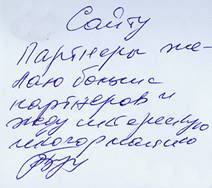 Сайту
Партнеры же-
лаю больше
партнеров и
жду интересную
многор